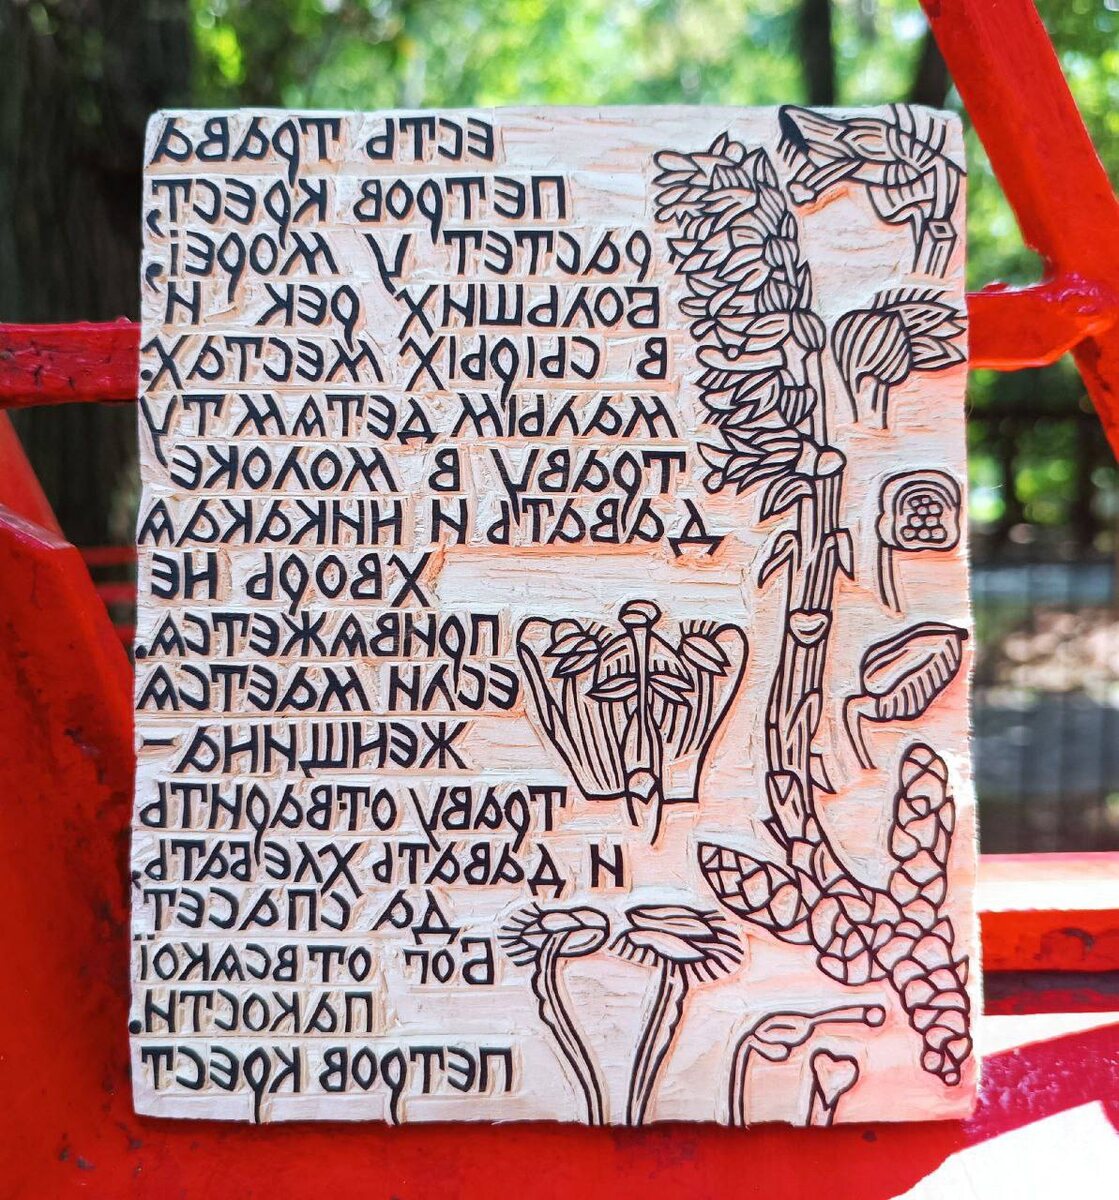 ЕСТЬ ТРАВА
ПЕТРОВ КРЕСТ,
РАСТЕТ У МОРЕЇ,
БОЛЬШИХ РЕК И
В СЫРЫХ МЕСТАХ.
МАЛЫМ ДЕТѦМ ТУ
ТРАВУ В МОЛОКЕ
ДАВАТЬ И НИКАКАѦ
ХВОРЬ НЕ
ПРИВѦЖЕТСѦ.
ЕСЛИ МАЕТСѦ
ЖЕНЩИНА-
ТРАВУ ОТВАРИТЬ
И ДАВАТЬ ХЛЕБАТЬ,
ДА СПАСЕТ
БОГ ОТ ВСѦКОЇ
ПАКОСТИ.
ПЕТРОВ КРЕСТ